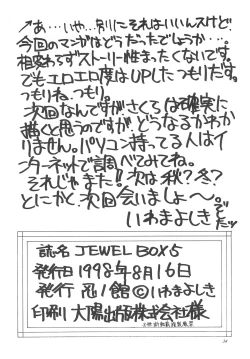 ↗あ…いや…別にそれはいいんスけど
今回のマンガはどうだったでしょうか…。
相変わらずストーリー性まったくないです。
でもエロエロ度はUPしたつもりだす。
つもりね、つもり。
次回なんですが、さくらは確実に
描くと思うのですが、どうなるかわか
りません。パソコン持ってる人はイ
ンターネットで調べてみてね。
それじゃまた!!次は秋?冬?
とにかく、次回会いましょ〜。
いわまよしき
でしたッ
誌名 JEWEL BOX 5
発行日 1998年8月16日
発行 忍ノ館 ©いわまよしき
印刷 大陽出版株式会社様